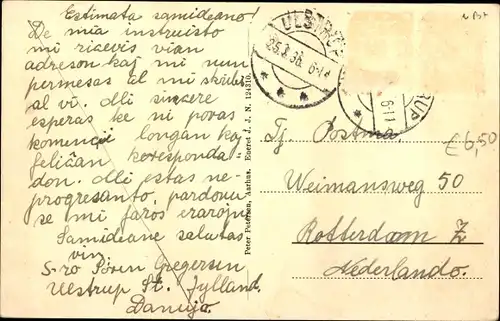 Estimata samideano!
De mia instruisto
mi ricevis vian
adreson kaj mi nun
permesas al mi skribi
al vi. Mi sincere
esperas ke ni povas
komenci longan kaj
feliĉan koresponda-
don. Mi estas ne-
progresanto, pardonu
se mi faros erarojn.
Samideane salutas
vin
S-ro Sören Gregersen
Ulstrup St. Jylland.
Danujo.
Peter Petersen, Aarhus. Eneret J. J. N. 124310.
ULSTRUP
25.3.36. 6-
RUP
Tj Postma
Weimansweg 50
Rotterdam Z
Nederlando.
£6,50